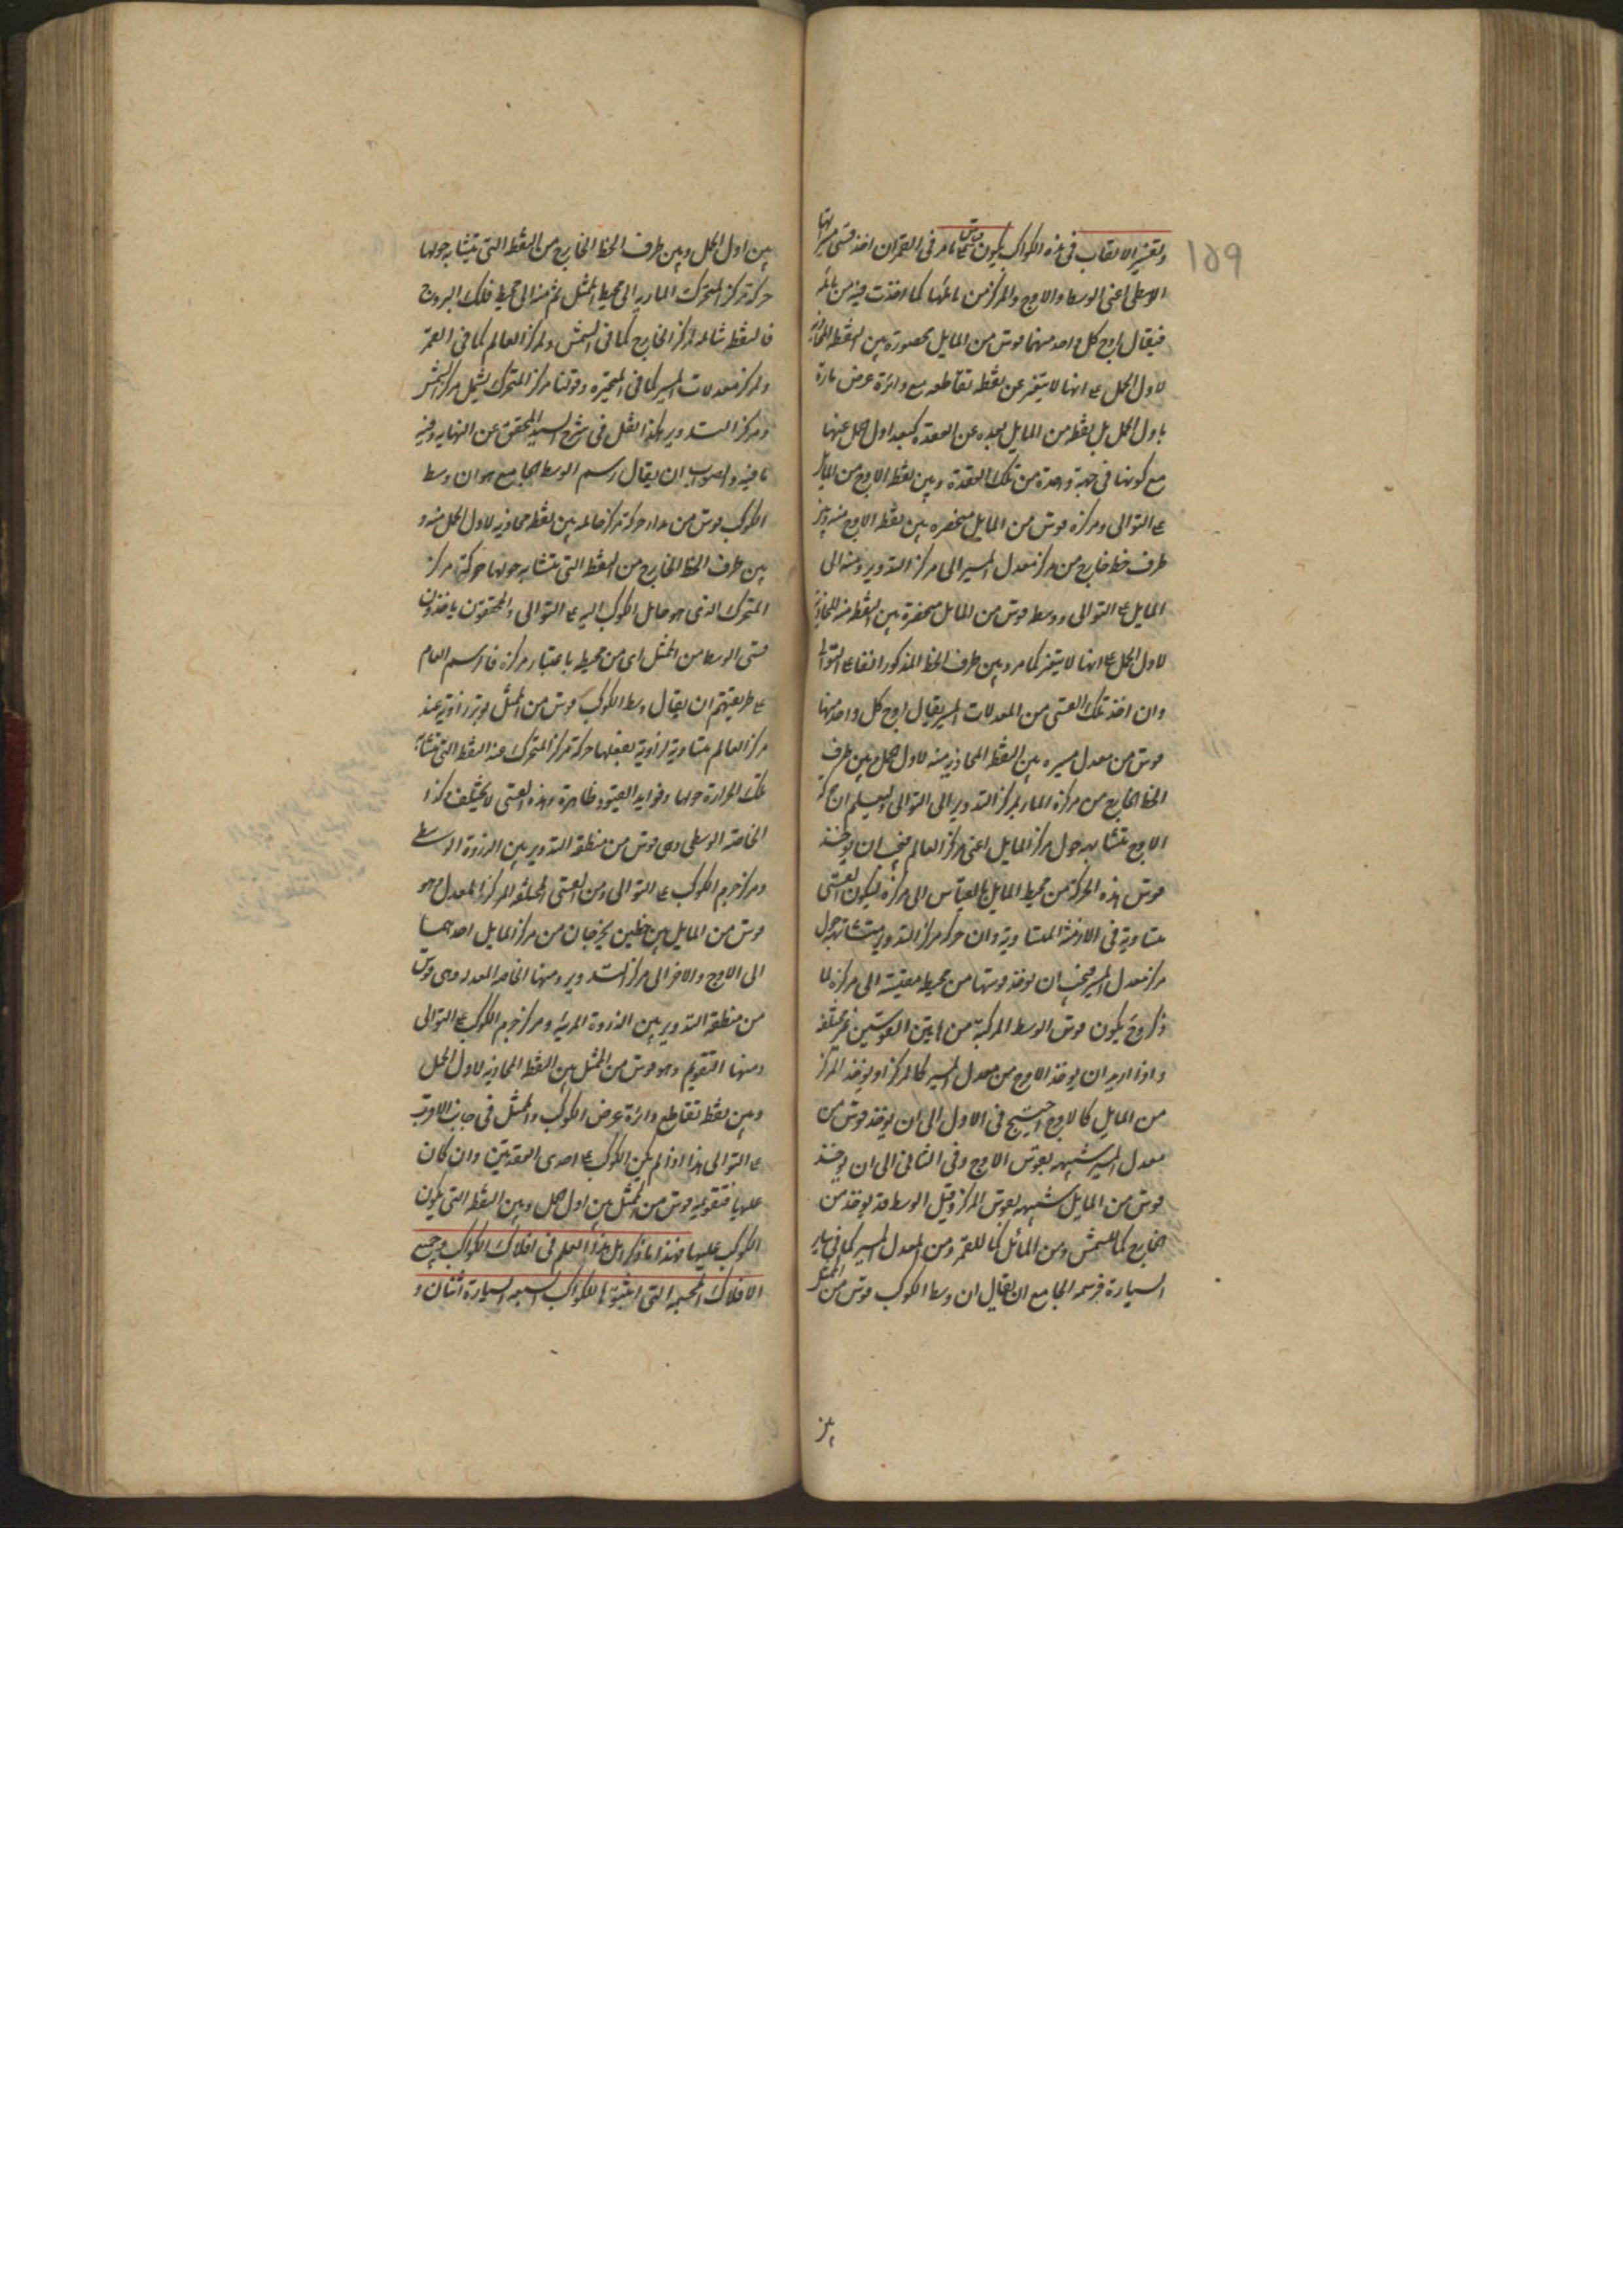 ١٥٩
وتفسير الالقاب في هذه الكواكب يكون قوس على ما مر في القمر ان اخذ قسي مسيراتها
الوسطى اعنى الوسط والاوج والمركز من مائلها كما اخذت فيه من مائله
فيقال اوج كل واحد منهما قوس من المايل محصورة بين النقطة المحاذية
لاول الحمل على انها لا يتغير عن نقطة تقاطعه مع دائرة عرض مارة
باول الحمل بل نقطة من المايل بعده عن العقدة كبعد اول الحمل عنها
مع كونها في جهة واحدة من تلك العقدة وبين نقطة الاوج من المايل
على التوالى ومركزه قوس من المايل منحصره بين نقطة الاوج منه وبين
طرف خط خارج من مركز معدل المسير الى مركز التدوير ومنه الى
المايل على التوالى ووسطه قوس من المايل منحصرة بين النقطة منه المحاذية
لاول الحمل على انها لا يتغير كما مر وبين طرف الخط المذكور انفا على التوالى
وان اخذ تلك القسي من المعدلات المسير يقال اوج كل واحد منها
قوس من معدل مسيره بين النقطة المحاذية منه لاول الحمل وبين طرف
الخط الخارج من مركزه المار بمركز التدوير الى التوالى وليعلم ان حركة
الاوج متشابهه حول مركز المايل اعنى مركز العالم فيجب ان يوخذ
قوس هذه الحركة من محيط المايل بالقياس الى مركزه ليكون القسي
متساوية في الازمنة المتساوية وان حركة مركز التدوير متشابهة حول
مركز معدل المسير فيجب ان يوخذ قوسها من محيطه مقيسة الى مركزه لما
ذكر وح يكون قوس الوسط المركبة من هاتين القوسين غير مختلفة
واذا اريد ان يوخذ الاوج من معدل المسير كالمركز او يوخذ المركز
من المايل كالاوج احتيج في الاول الى ان يوخذ قوس من
معدل المسير شبيهه بقوس الاوج وفى الثانى الى ان يوخذ
قوس من المايل شبيهه بقوس المركز وقيل الوسط قد يوخذ من
الخارج كما للشمس ومن المائل كما للقمر ومن المعدل المسير كما في ساير
السيارة فرسمه الجامع ان يقال ان وسط الكوكب قوس من الممثل
بين
بين اول الحمل وبين طرف الخط الخارج من النقطة التى يتشابه حولها
حركة مركز المتحرك المار به الى محيط الممثل ثم منه الى محيط فلك البروج
فالنقطة شاملة لمركز الخارج كما في الشمس ولمركز العالم كما في القمر
ولمركز معدلات المسير كما في المتحيرة وقولنا مركز المتحرك يشمل مركز الشمس
ومركز التدوير هكذا نقل في شرح السيد المحقق عن النهايه وفيه
ما فيه والصواب ان يقال رسم الوسط الجامع هو ان وسط
الكوكب قوس من مدار حركة مركز حامله بين نقطة محاذية لاول الحمل منه و
بين طرف الخط الخارج من النقطة التى يتشابه حولها حركة مركز
المتحرك الذى هو حامل الكوكب اليه على التوالى والمحققون ياخذون
قسي الوسط من الممثل اى من محيطه باعتبار مركزه فالرسم العام
على طريقتهم ان يقال وسط الكوكب قوس من الممثل يوتر زاوية عند
مركز العالم متساوية لزاوية يفعلها حركة مركز المتحرك عند النقطة التى تتشابه
تلك الحركة حولها وفوايد القيود ظاهرة وهذه القسي لا يختلف وكذا
الخاصة الوسطى وهى قوس من منطقة التدوير بين الذروة الوسطى
ومركز جرم الكوكب على التوالى ومن القسي المختلفة المركز المعدل وهو
قوس من المايل بين خطين يخرجان من مركز المايل احدهما
الى الاوج والاخر الى مركز التدوير ومنها الخاصة المعدلة وهى قوس
من منطقة التدوير بين الذروة المرئية ومركز جرم الكوكب على التوالى
ومنها التقويم وهو قوس من الممثل بين النقطة المحاذيه لاول الحمل
وبين نقطة تقاطع دائرة عرض الكوكب والممثل في جانب الاقرب
على التوالى هذا اذا لم يكن الكوكب على احدى العقدتين وان كان
عليها فتقويمه قوس من الممثل بين اول الحمل وبين النقطة التى يكون
الكوكب عليها فهذا ما ذكر اهل هذا العلم في افلاك الكواكب وجميع
الافلاك المجسمة التى اثبتوها للكواكب السبعه السيارة اثنان و